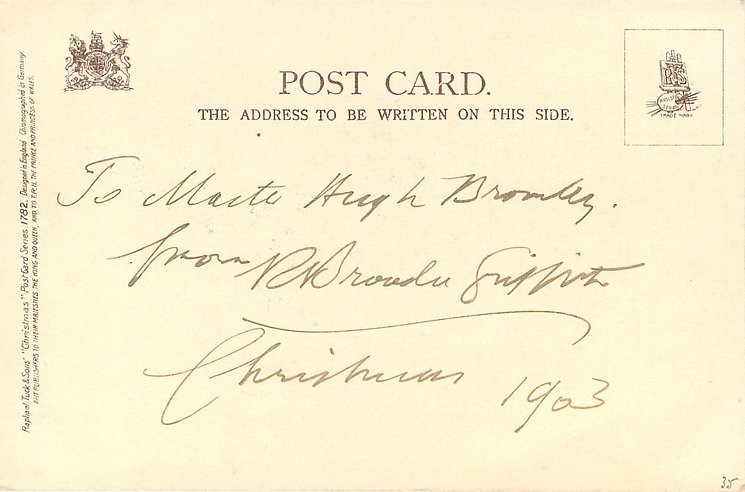 POST CARD.
THE ADDRESS TO BE WRITTEN ON THIS SIDE.
RTS
TRADE MARK
To Master Hugh Bromley.
from Griffith
Christmas 1903
Raphael Tuck & Sons' "Christmas" PostCard Series 1782. Designed in England Chromographed in Germany.
ART PUBLISHERS TO THEIR MAJESTIES THE KING AND QUEEN, AND TO T.R.H. THE PRINCE AND PRINCESS OF WALES.
35